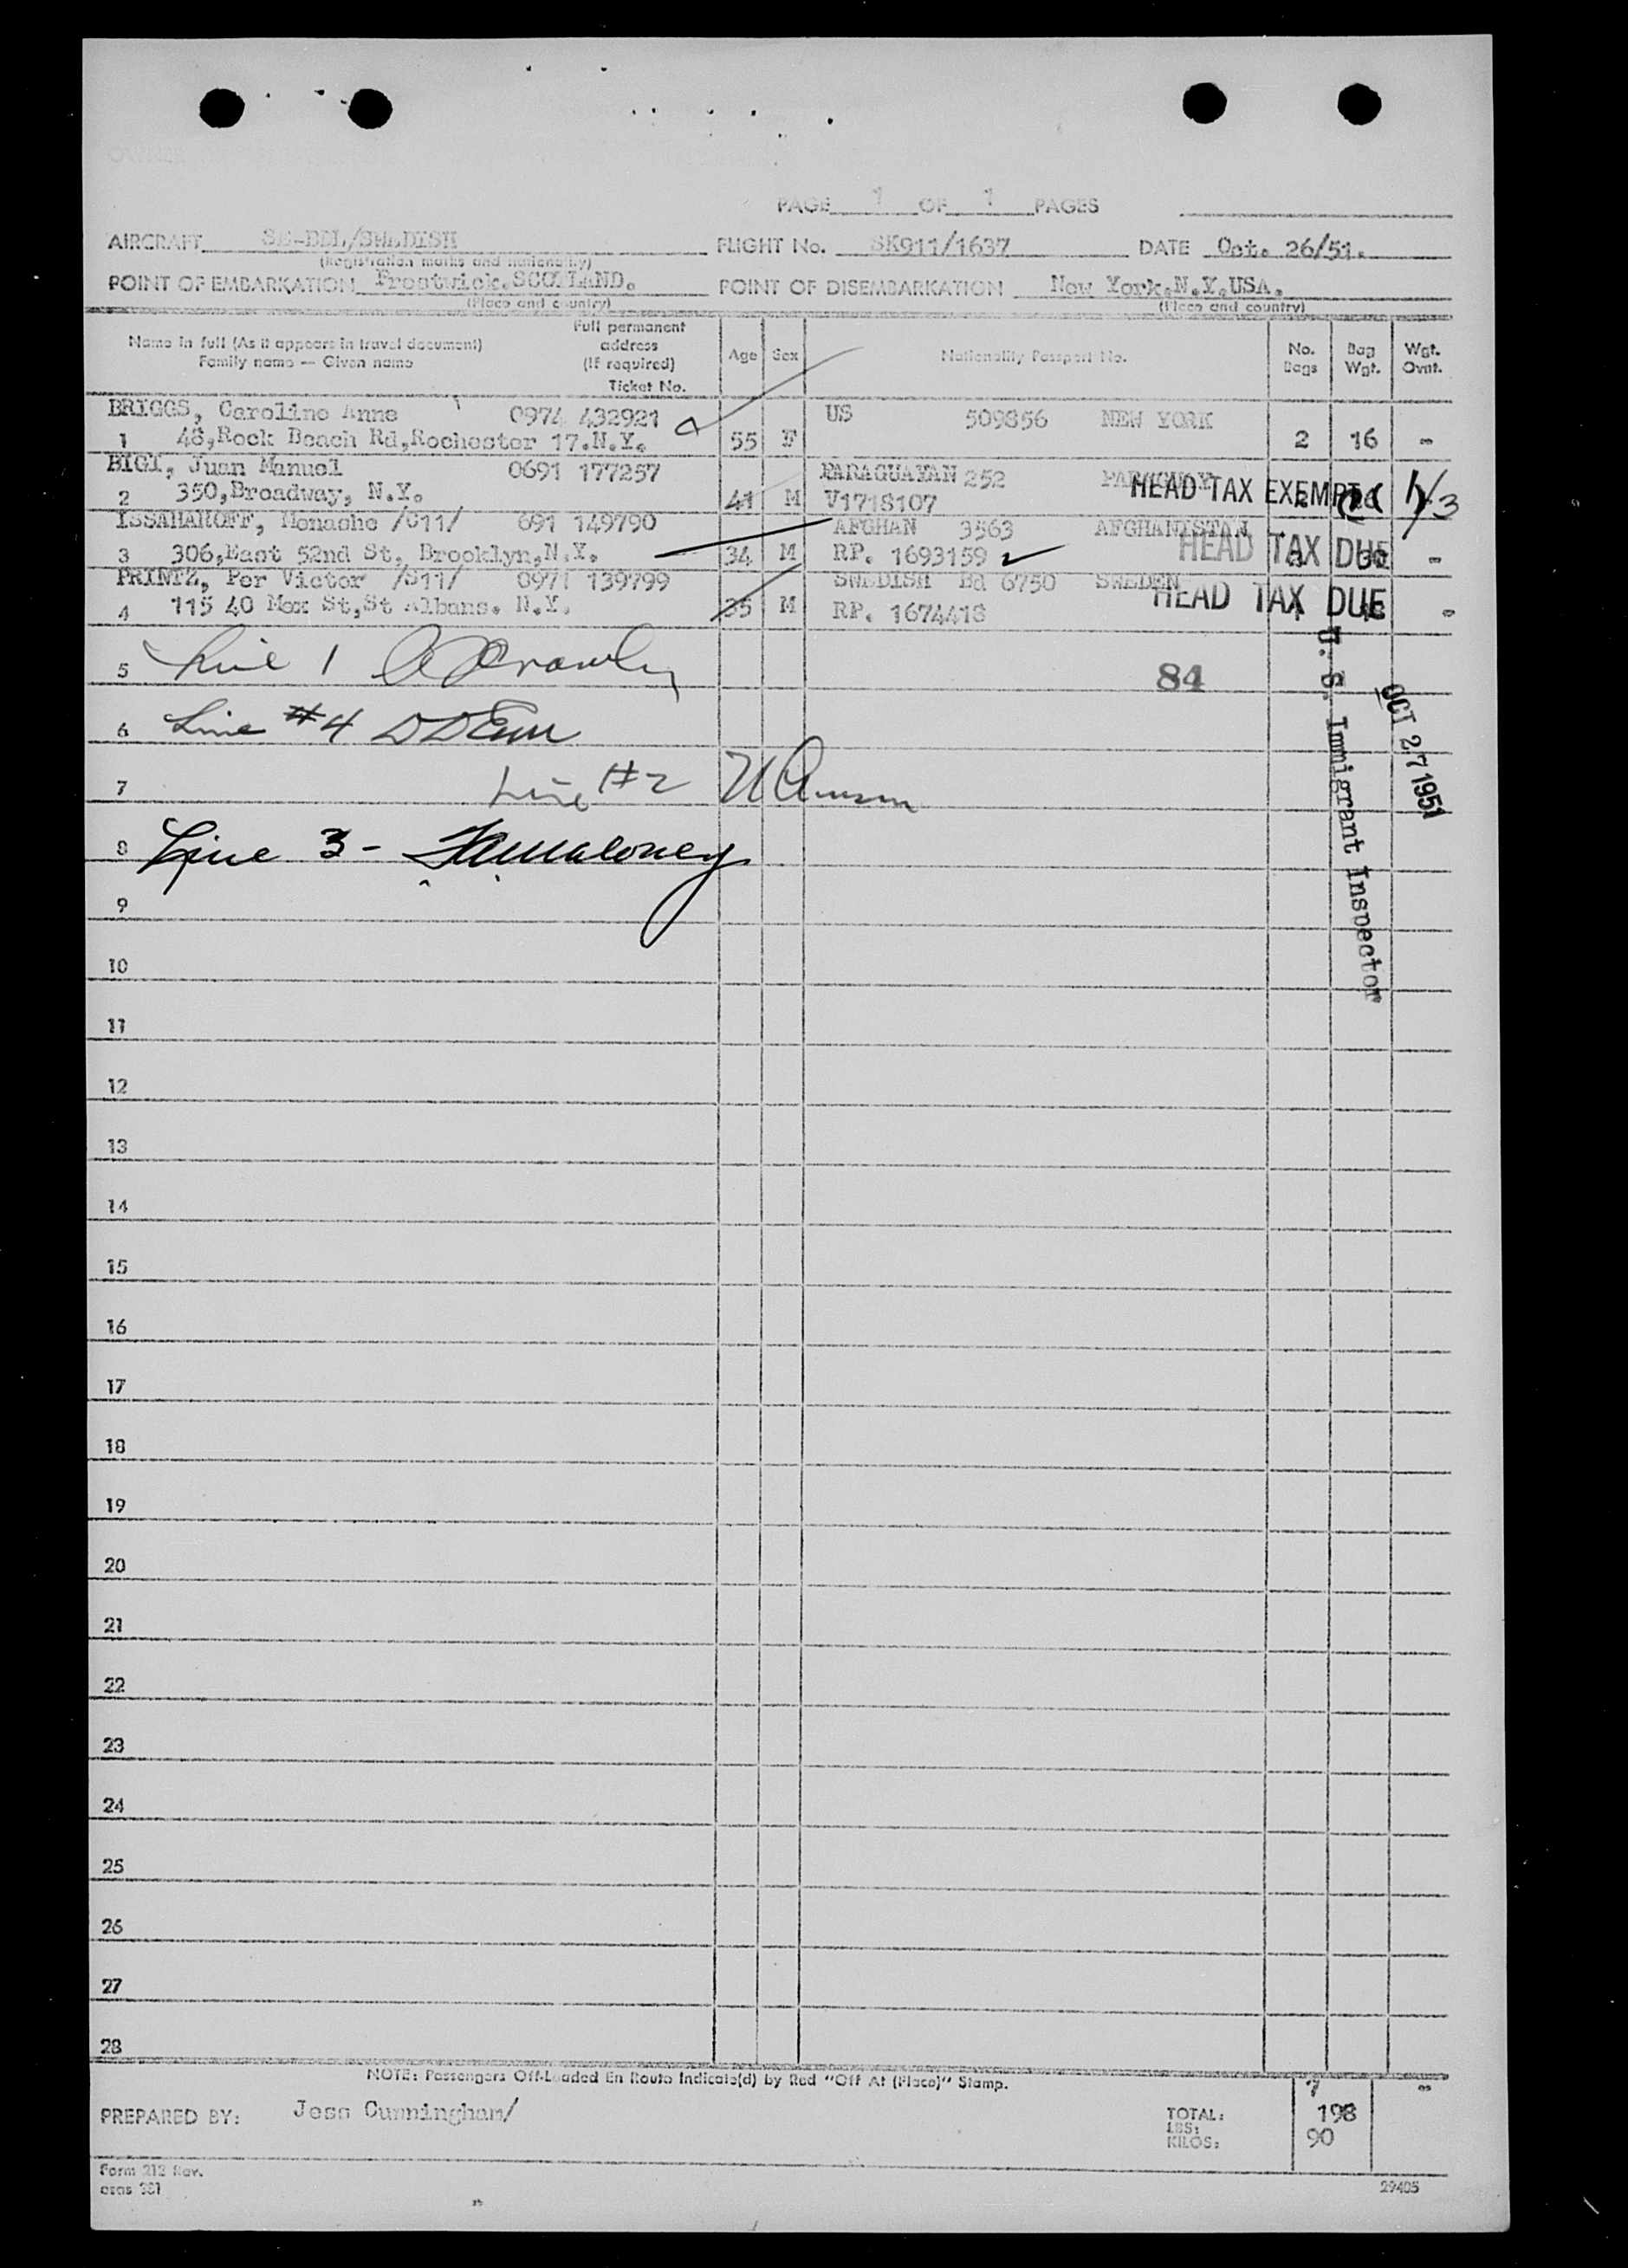 PAGE 1 OF 1 PAGES
AIRCRAFT SE-BDL/SWEDISH FLIGHT No. SK911/1637 DATE Oct. 26/51.
(Registration marks and nationality)
POINT OF EMBARKATION Prestwick.SCOTLAND. POINT OF DISEMBARKATION New York.N.Y.USA.
(Place and country) (Place and country)
Name in full (As it appears in travel document) Family name — Given name
Full permanent address (If required) Ticket No.
Age Sex Nationality Passport No. No. Bags Bag Wgt. Wgt. Ovnt.
BRIGGS, Caroline Anne 0974 432921 US 509856 NEW YORK
1 48,Rock Beach Rd,Rochester 17.N.Y. 55 F 2 16 -
BIGI, Juan Manuel 0691 177257 PARAGUAYAN 252 PARAGUAY
2 350,Broadway, N.Y. 41 M V1718107 HEAD TAX EXEMPT
ISSAHAROFF, Menashe /S11/ 691 149790 AFGHAN 3563 AFGHANISTAN
3 306,East 52nd St, Brooklyn,N.Y. 34 M RP. 1693159 HEAD TAX DUE -
PRINTZ, Per Victor /S11/ 0971 139799 SWEDISH Bd 6750 SWEDEN
4 115 40 Mex St,St Albans. N.Y. 35 M RP. 1674418 HEAD TAX DUE -
5 Line 1 84
6 Line #4
7 Line #2
8 Line 3 -
U. S. Immigrant Inspector
OCT 27 1951
9
10
11
12
13
14
15
16
17
18
19
20
21
22
23
24
25
26
27
28
NOTE: Passengers Off-Loaded En Route Indicate(d) by Red "Off At (Place)" Stamp.
PREPARED BY: Jess Cunningham/
TOTAL: 7 -
LBS: 198
KILOS: 90
Form 212 Rev.
29405